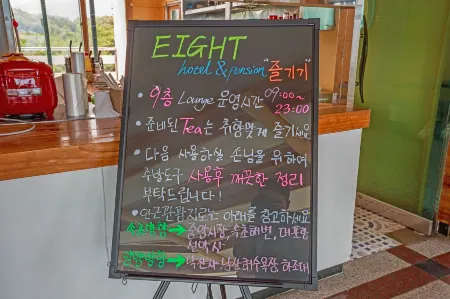 EIGHT
hotel & pension "즐기기"
• 9층 Lounge 운영시간 09:00~
23:00
• 준비된 Tea는 취향맞게 즐기세요
• 다음 사용하실 손님을 위하여
주방도구 사용후 깨끗한 정리
부탁드립니다!
• 연근관광지로는 아래를 참고하세요
속초방향 → 중앙시장, 속초해변, 대포항,
설악산
강릉방향 → 낙산사, 낙산해수욕장, 하조대